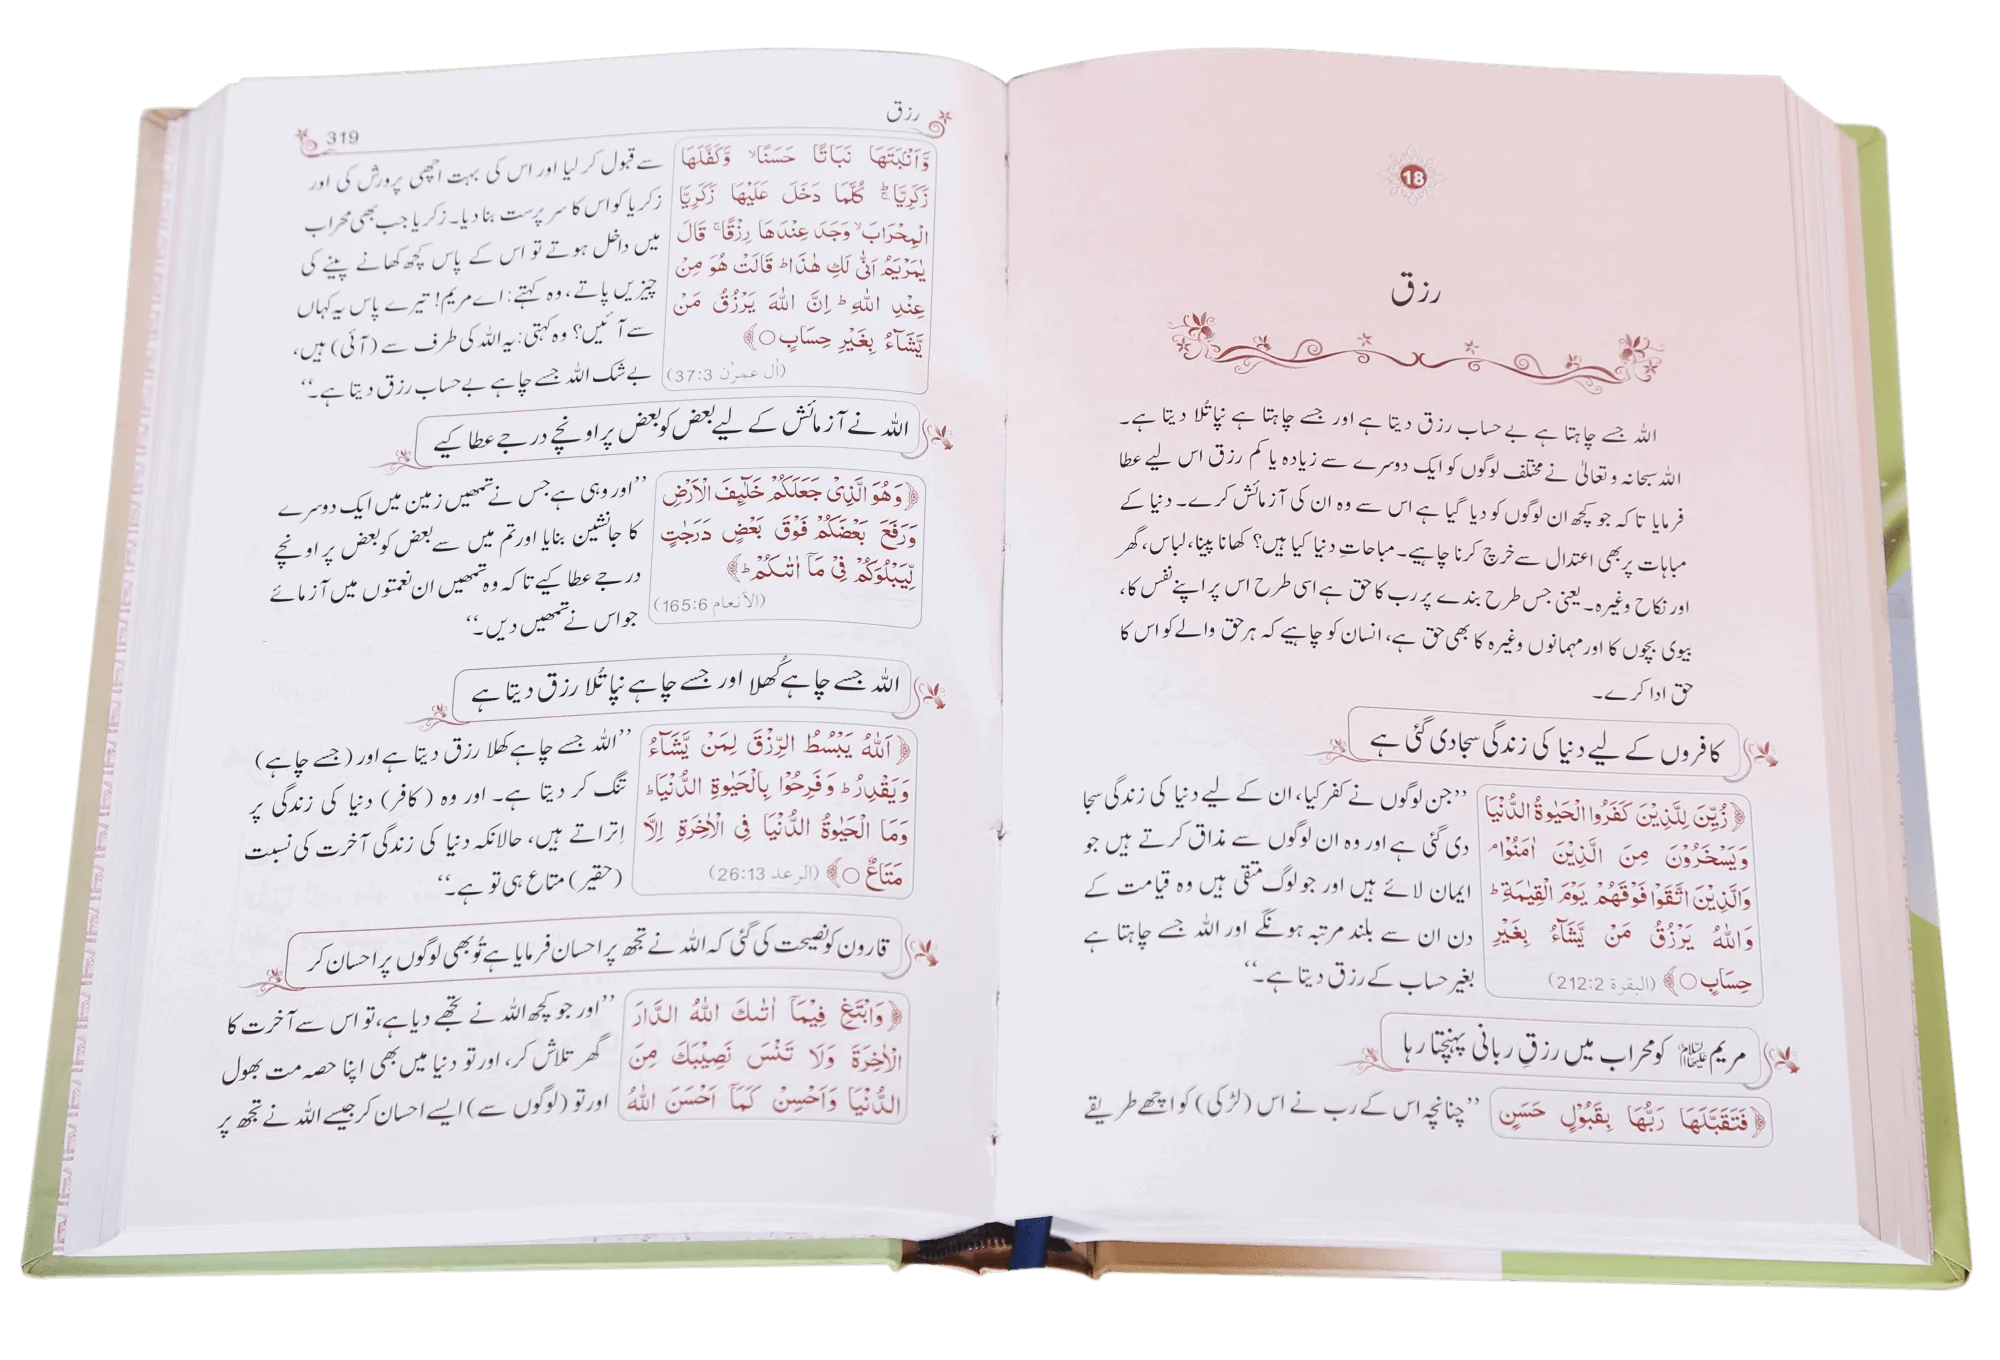 18
رزق
اللہ جسے چاہتا ہے بے حساب رزق دیتا ہے اور جسے چاہتا ہے نپا تُلا دیتا ہے۔
اللہ سبحانہ وتعالیٰ نے مختلف لوگوں کو ایک دوسرے سے زیادہ یا کم رزق اس لیے عطا
فرمایا تاکہ جو کچھ ان لوگوں کو دیا گیا ہے اس سے وہ ان کی آزمائش کرے۔ دنیا کے
مباہات پر بھی اعتدال سے خرچ کرنا چاہیے۔ مباحاتِ دنیا کیا ہیں؟ کھانا پینا، لباس، گھر
اور نکاح وغیرہ۔ یعنی جس طرح بندے پر رب کا حق ہے اسی طرح اس پر اپنے نفس کا،
بیوی بچوں کا اور مہمانوں وغیرہ کا بھی حق ہے، انسان کو چاہیے کہ ہر حق والے کو اس کا
حق ادا کرے۔
کافروں کے لیے دنیا کی زندگی سجا دی گئی ہے
﴿زُيِّنَ لِلَّذِيْنَ كَفَرُوا الْحَيٰوةُ الدُّنْيَا
وَيَسْخَرُوْنَ مِنَ الَّذِيْنَ اٰمَنُوْا ۘ
وَالَّذِيْنَ اتَّقَوْا فَوْقَهُمْ يَوْمَ الْقِيٰمَةِ ؕ
وَاللّٰهُ يَرْزُقُ مَنْ يَّشَآءُ بِغَيْرِ
حِسَابٍ ○﴾ (البقرة 212:2)
’’جن لوگوں نے کفر کیا، ان کے لیے دنیا کی زندگی سجا
دی گئی ہے اور وہ ان لوگوں سے مذاق کرتے ہیں جو
ایمان لائے ہیں اور جو لوگ متقی ہیں وہ قیامت کے
دن ان سے بلند مرتبہ ہونگے اور اللہ جسے چاہتا ہے
بغیر حساب کے رزق دیتا ہے۔‘‘
مریم علیہا السلام کو محراب میں رزقِ ربانی پہنچتا رہا
﴿فَتَقَبَّلَهَا رَبُّهَا بِقَبُوْلٍ حَسَنٍ
’’چنانچہ اس کے رب نے اس (لڑکی) کو اچھے طریقے
رزق
319
وَّاَنْۢبَتَهَا نَبَاتًا حَسَنًا ۙ وَّكَفَّلَهَا
زَكَرِيَّا ۚ كُلَّمَا دَخَلَ عَلَيْهَا زَكَرِيَّا
الْمِحْرَابَ ۙ وَجَدَ عِنْدَهَا رِزْقًا ۚ قَالَ
يٰمَرْيَمُ اَنّٰى لَكِ هٰذَا ؕ قَالَتْ هُوَ مِنْ
عِنْدِ اللّٰهِ ؕ اِنَّ اللّٰهَ يَرْزُقُ مَنْ
يَّشَآءُ بِغَيْرِ حِسَابٍ ○﴾
(اٰل عمرٰن 37:3)
سے قبول کر لیا اور اس کی بہت اچھی پرورش کی اور
زکریا کو اس کا سرپرست بنا دیا۔ زکریا جب بھی محراب
میں داخل ہوتے تو اس کے پاس کچھ کھانے پینے کی
چیزیں پاتے، وہ کہتے: اے مریم! تیرے پاس یہ کہاں
سے آئیں؟ وہ کہتی: یہ اللہ کی طرف سے (آئی) ہیں،
بے شک اللہ جسے چاہے بے حساب رزق دیتا ہے۔‘‘
اللہ نے آزمائش کے لیے بعض کو بعض پر اونچے درجے عطا کیے
﴿وَهُوَ الَّذِيْ جَعَلَكُمْ خَلٰٓىِٕفَ الْاَرْضِ
وَرَفَعَ بَعْضَكُمْ فَوْقَ بَعْضٍ دَرَجٰتٍ
لِّيَبْلُوَكُمْ فِيْ مَآ اٰتٰىكُمْ ؕ﴾
(الأنعام 165:6)
’’اور وہی ہے جس نے تمھیں زمین میں ایک دوسرے
کا جانشین بنایا اور تم میں سے بعض کو بعض پر اونچے
درجے عطا کیے تاکہ وہ تمھیں ان نعمتوں میں آزمائے
جو اس نے تمھیں دیں۔‘‘
اللہ جسے چاہے کُھلا اور جسے چاہے نپا تُلا رزق دیتا ہے
﴿اَللّٰهُ يَبْسُطُ الرِّزْقَ لِمَنْ يَّشَآءُ
وَيَقْدِرُ ؕ وَفَرِحُوْا بِالْحَيٰوةِ الدُّنْيَا ؕ
وَمَا الْحَيٰوةُ الدُّنْيَا فِي الْاٰخِرَةِ اِلَّا
مَتَاعٌ ○﴾ (الرعد 26:13)
’’اللہ جسے چاہے کھلا رزق دیتا ہے اور (جسے چاہے)
تنگ کر دیتا ہے۔ اور وہ (کافر) دنیا کی زندگی پر
اِتراتے ہیں، حالانکہ دنیا کی زندگی آخرت کی نسبت
(حقیر) متاع ہی تو ہے۔‘‘
قارون کو نصیحت کی گئی کہ اللہ نے تجھ پر احسان فرمایا ہے تُو بھی لوگوں پر احسان کر
﴿وَابْتَغِ فِيْمَآ اٰتٰىكَ اللّٰهُ الدَّارَ
الْاٰخِرَةَ وَلَا تَنْسَ نَصِيْبَكَ مِنَ
الدُّنْيَا وَاَحْسِنْ كَمَآ اَحْسَنَ اللّٰهُ
’’اور جو کچھ اللہ نے تجھے دیا ہے، تو اس سے آخرت کا
گھر تلاش کر، اور تو دنیا میں بھی اپنا حصہ مت بھول
اور تو (لوگوں سے) ایسے احسان کر جیسے اللہ نے تجھ پر